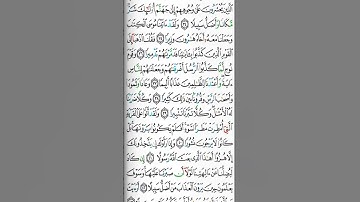 الَّذِينَ يُحْشَرُونَ عَلَىٰ وُجُوهِهِمْ إِلَىٰ جَهَنَّمَ أُولَٰئِكَ شَرٌّ
مَّكَانًا وَأَضَلُّ سَبِيلًا ۝٣٤ وَلَقَدْ آتَيْنَا مُوسَى الْكِتَٰبَ
وَجَعَلْنَا مَعَهُ أَخَاهُ هَٰرُونَ وَزِيرًا ۝٣٥ فَقُلْنَا اذْهَبَا إِلَى
الْقَوْمِ الَّذِينَ كَذَّبُوا بِآيَٰتِنَا فَدَمَّرْنَٰهُمْ تَدْمِيرًا ۝٣٦ وَقَوْمَ
نُوحٍ لَّمَّا كَذَّبُوا الرُّسُلَ أَغْرَقْنَٰهُمْ وَجَعَلْنَٰهُمْ لِلنَّاسِ
آيَةً وَأَعْتَدْنَا لِلظَّٰلِمِينَ عَذَابًا أَلِيمًا ۝٣٧ وَعَادًا وَثَمُودَ
وَأَصْحَٰبَ الرَّسِّ وَقُرُونًا بَيْنَ ذَٰلِكَ كَثِيرًا ۝٣٨ وَكُلًّا ضَرَبْنَا
لَهُ الْأَمْثَالَ وَكُلًّا تَبَّرْنَا تَتْبِيرًا ۝٣٩ وَلَقَدْ أَتَوْا عَلَى الْقَرْيَةِ
الَّتِي أُمْطِرَتْ مَطَرَ السَّوْءِ أَفَلَمْ يَكُونُوا يَرَوْنَهَا بَلْ
كَانُوا لَا يَرْجُونَ نُشُورًا ۝٤٠ وَإِذَا رَأَوْكَ إِنْ يَتَّخِذُونَكَ
إِلَّا هُزُوًا أَهَٰذَا الَّذِي بَعَثَ اللَّهُ رَسُولًا ۝٤١ إِنْ كَادَ
لَيُضِلُّنَا عَنْ آلِهَتِنَا لَوْلَا أَنْ صَبَرْنَا عَلَيْهَا وَسَوْفَ
يَعْلَمُونَ حِينَ يَرَوْنَ الْعَذَابَ مَنْ أَضَلُّ سَبِيلًا ۝٤٢ أَرَأَيْتَ